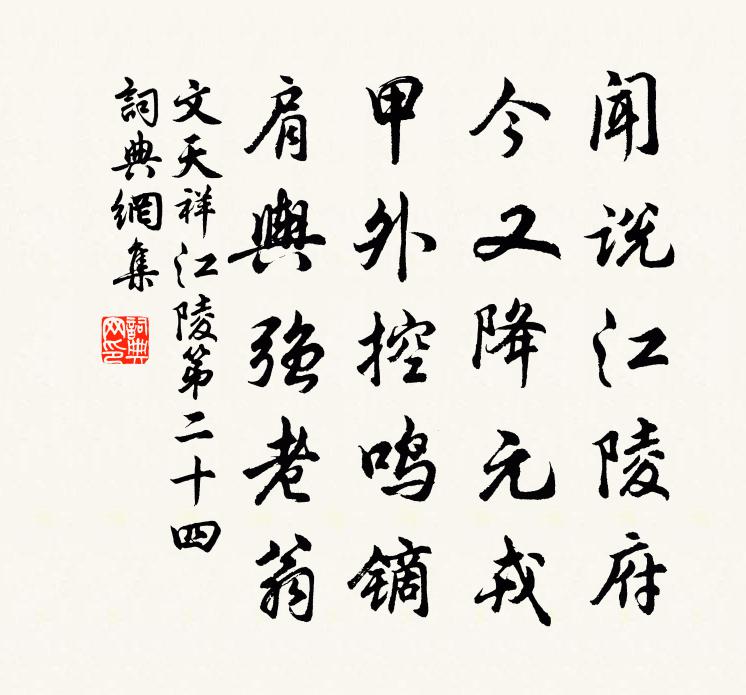 闻说江陵府
今又降元戎
甲外控鸣镝
肩舆强老翁
文天祥江陵第二十四
詞典網集
詞典网印